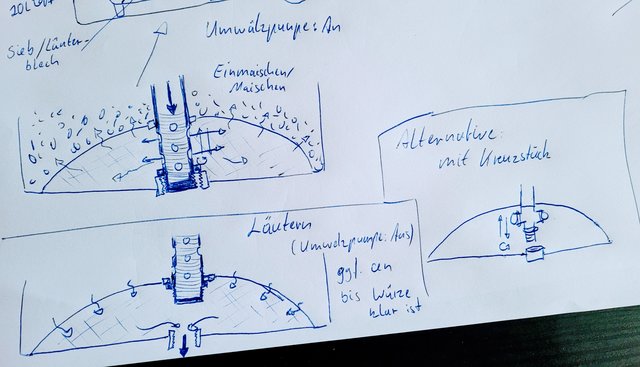 Sieb/Läuter-
blech
Umwälzpumpe: An
Einmaischen/
Maischen
Läutern
(Umwälzpumpe: Aus)
ggf. an
bis Würze
klar ist
Alternative:
mit Kreuzstück